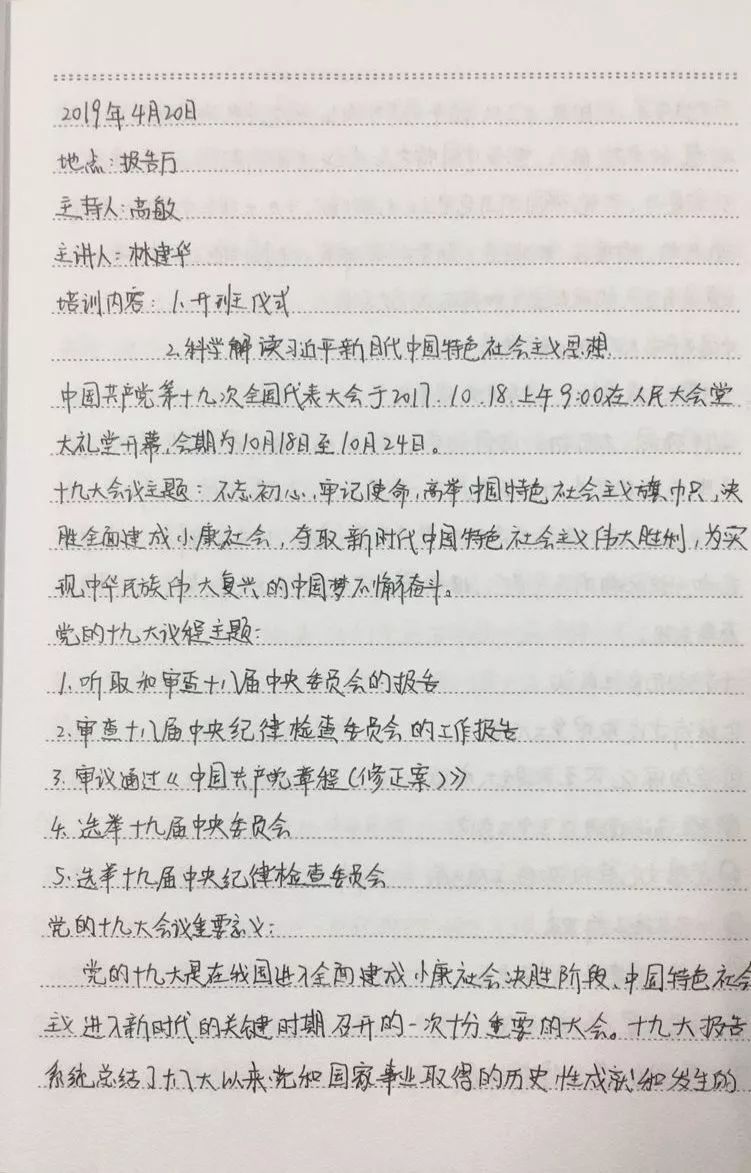 2019年4月20日
地点:报告厅
主持人:高敏
主讲人:林建华
培训内容:1.开班仪式
2.科学解读习近平新时代中国特色社会主义思想
中国共产党第十九次全国代表大会于2017.10.18.上午9:00在人民大会堂
大礼堂开幕,会期为10月18日至10月24日。
十九大会议主题:不忘初心,牢记使命,高举中国特色社会主义旗帜,决
胜全面建成小康社会,夺取新时代中国特色社会主义伟大胜利,为实
现中华民族伟大复兴的中国梦不懈奋斗。
党的十九大议程主题:
1.听取和审查十八届中央委员会的报告
2.审查十八届中央纪律检查委员会的工作报告
3.审议通过《中国共产党章程(修正案)》
4.选举十九届中央委员会
5.选举十九届中央纪律检查委员会
党的十九大会议重要意义:
党的十九大是在我国进入全面建成小康社会决胜阶段、中国特色社会
主义进入新时代的关键时期召开的一次十分重要的大会。十九大报告
系统总结了十八大以来党和国家事业取得的历史性成就和发生的